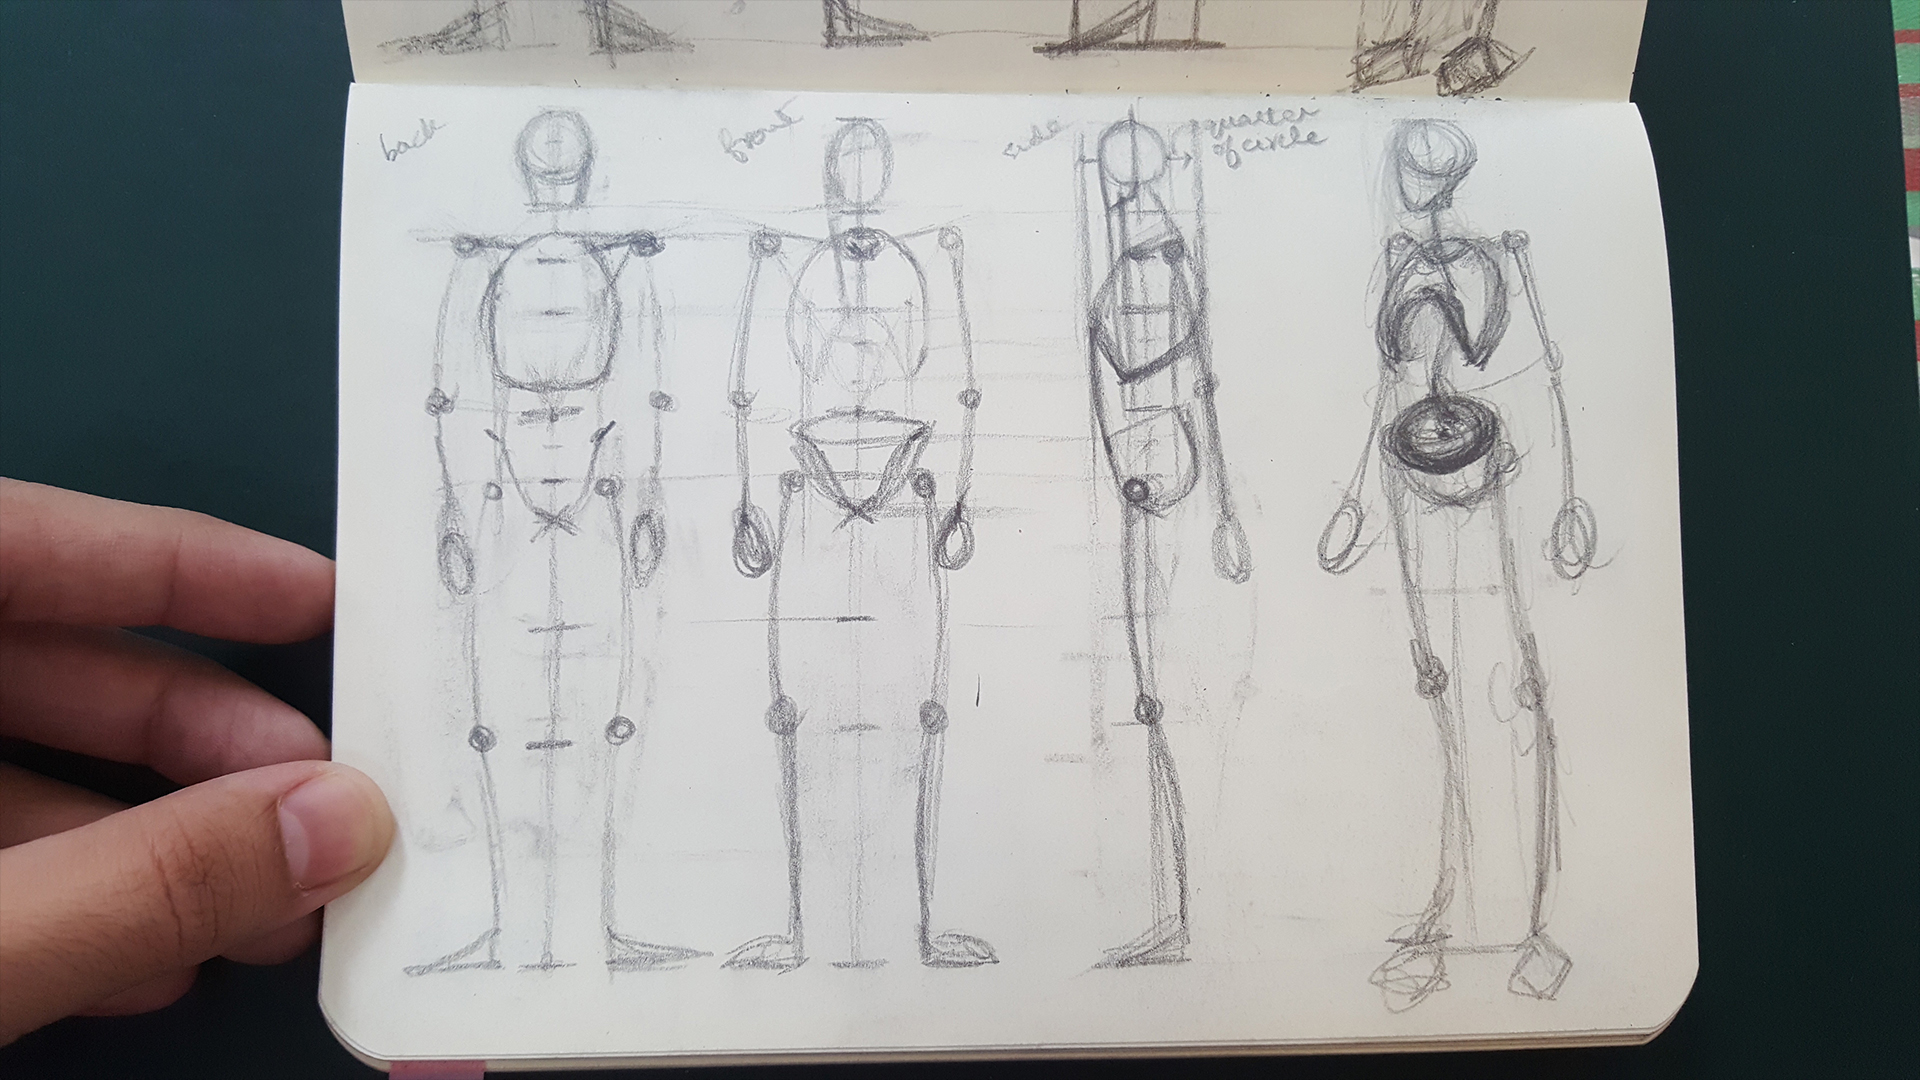 back
front
side
quarter
of circle